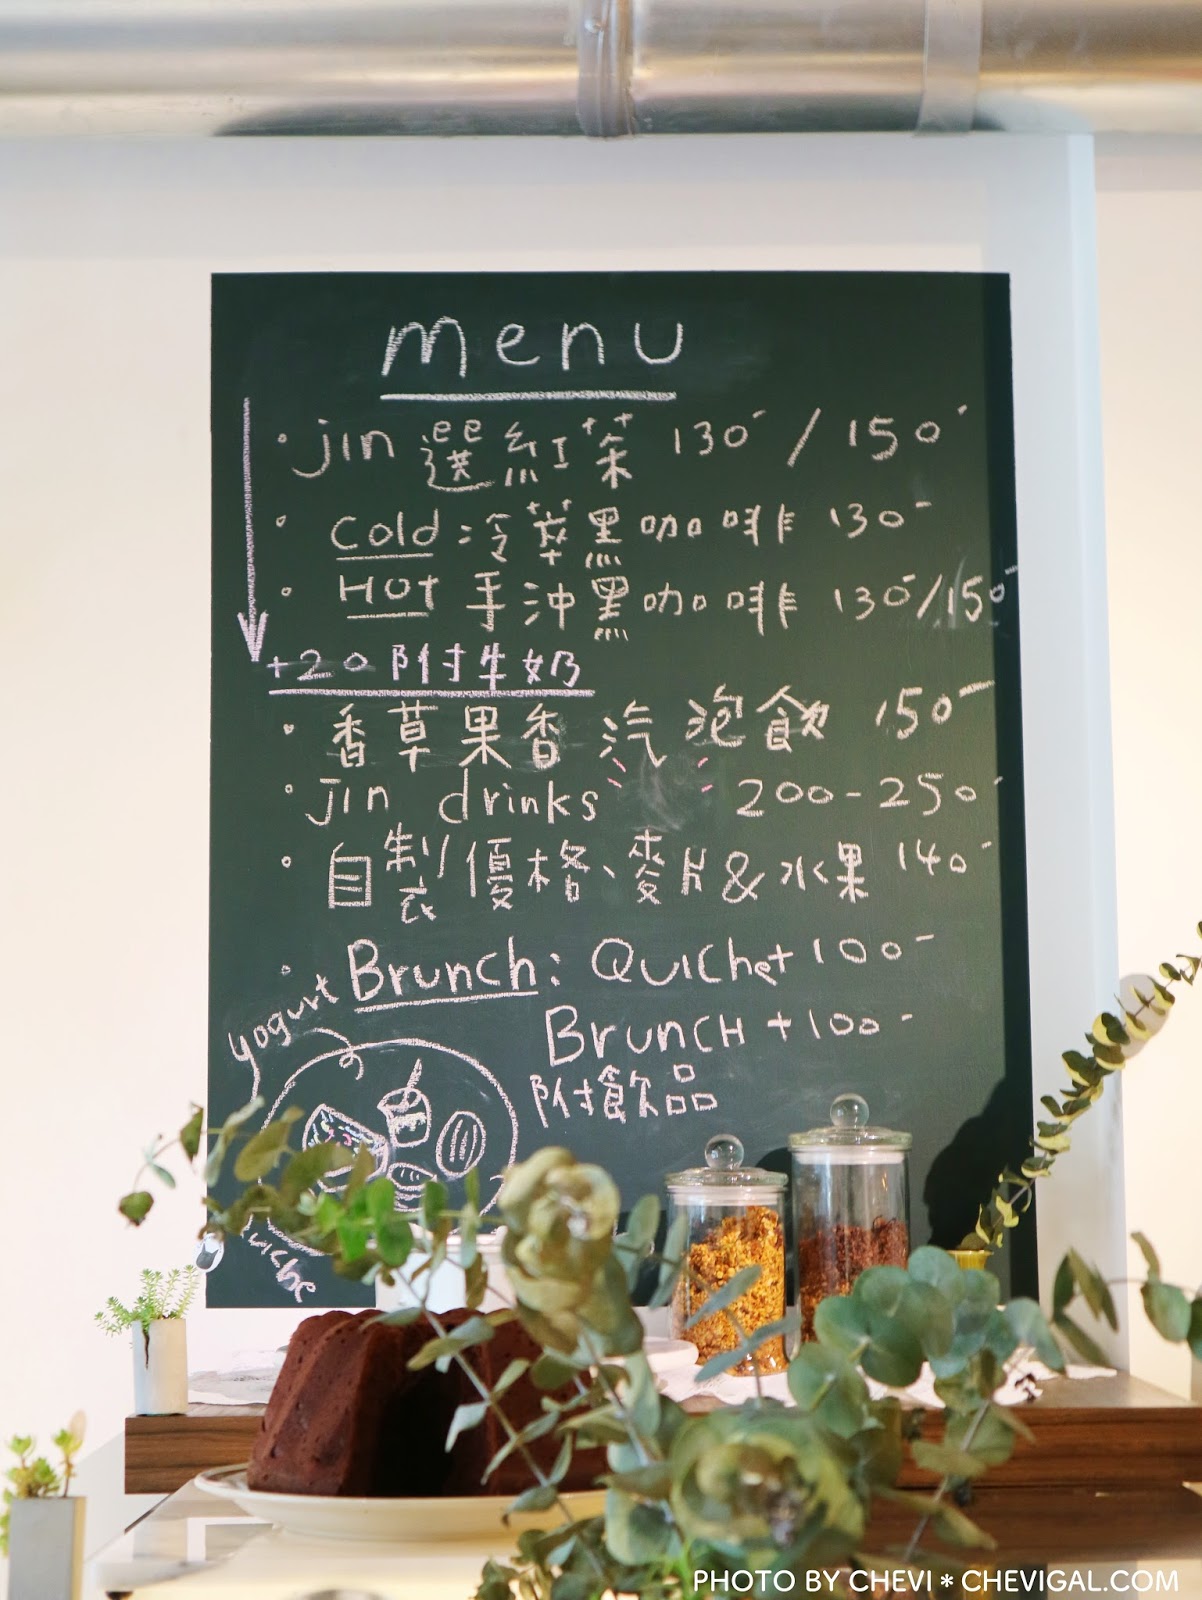 menu
jin 選紅茶 130-/150-
Cold:冷萃黑咖啡 130-
HOT 手沖黑咖啡 130-/150-
+20 附牛奶
香草果香汽泡飲 150-
jin drinks 200-250-
自製優格、麥片&水果 140-
Brunch: Quiche+100-
BruncH +100-
附飲品
yogurt
PHOTO BY CHEVI*CHEVIGAL.COM